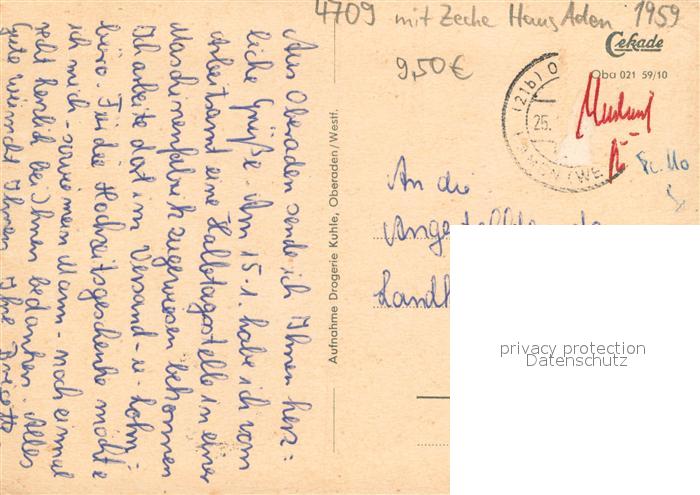 4709 mit Zeche Haus Aden 1959
9,50€
Cekade
Oba 021 59/10
(21b) O
25.
Aus Oberaden sende ich Ihnen herz=
liche Grüße. Am 15.1. habe ich vom
Arbeitsamt eine Halbtagsstelle in einer
Maschinenfabrik zugewiesen bekommen
Ich arbeite dort im Versand- u. Lohn-
büro. Für die Hochzeitsgeschenke möchte
ich mich - sowie mein Mann - noch einmal
recht herzlich bei Ihnen bedanken. Alles
Gute wünscht Ihnen Ihre
Aufnahme Drogerie Kuhle, Oberaden/Westf.
An die
Landk
privacy protection
Datenschutz